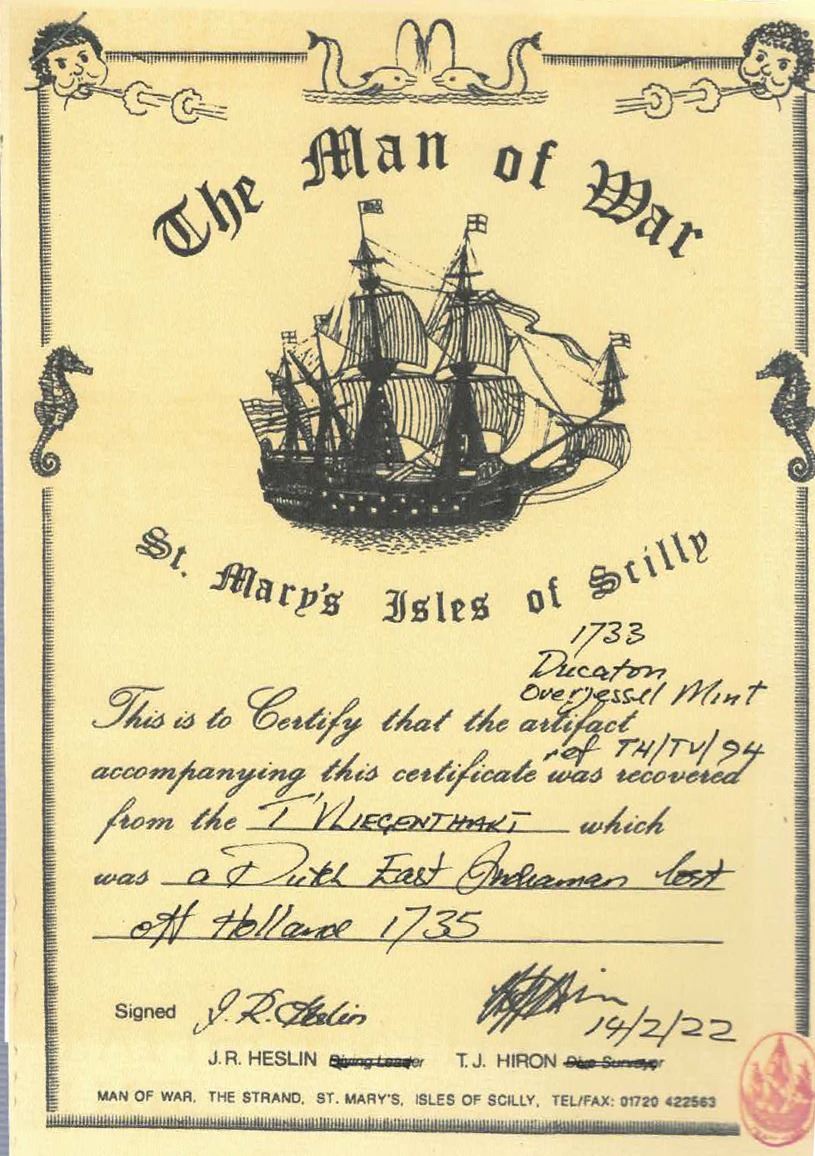 The Man of War
St. Mary's Isles of Scilly
1733
Ducaton
Overjessel Mint
This is to Certify that the artifact
ref TH/TV/94
accompanying this certificate was recovered
from the T'VLIEGENTHART which
was a Dutch East Indiaman lost
off Holland 1735
Signed J.R. Heslin
14/2/22
J.R. HESLIN Diving Leader T.J. HIRON Dive Surveyor
MAN OF WAR, THE STRAND, ST. MARY'S, ISLES OF SCILLY, TEL/FAX: 01720 422563